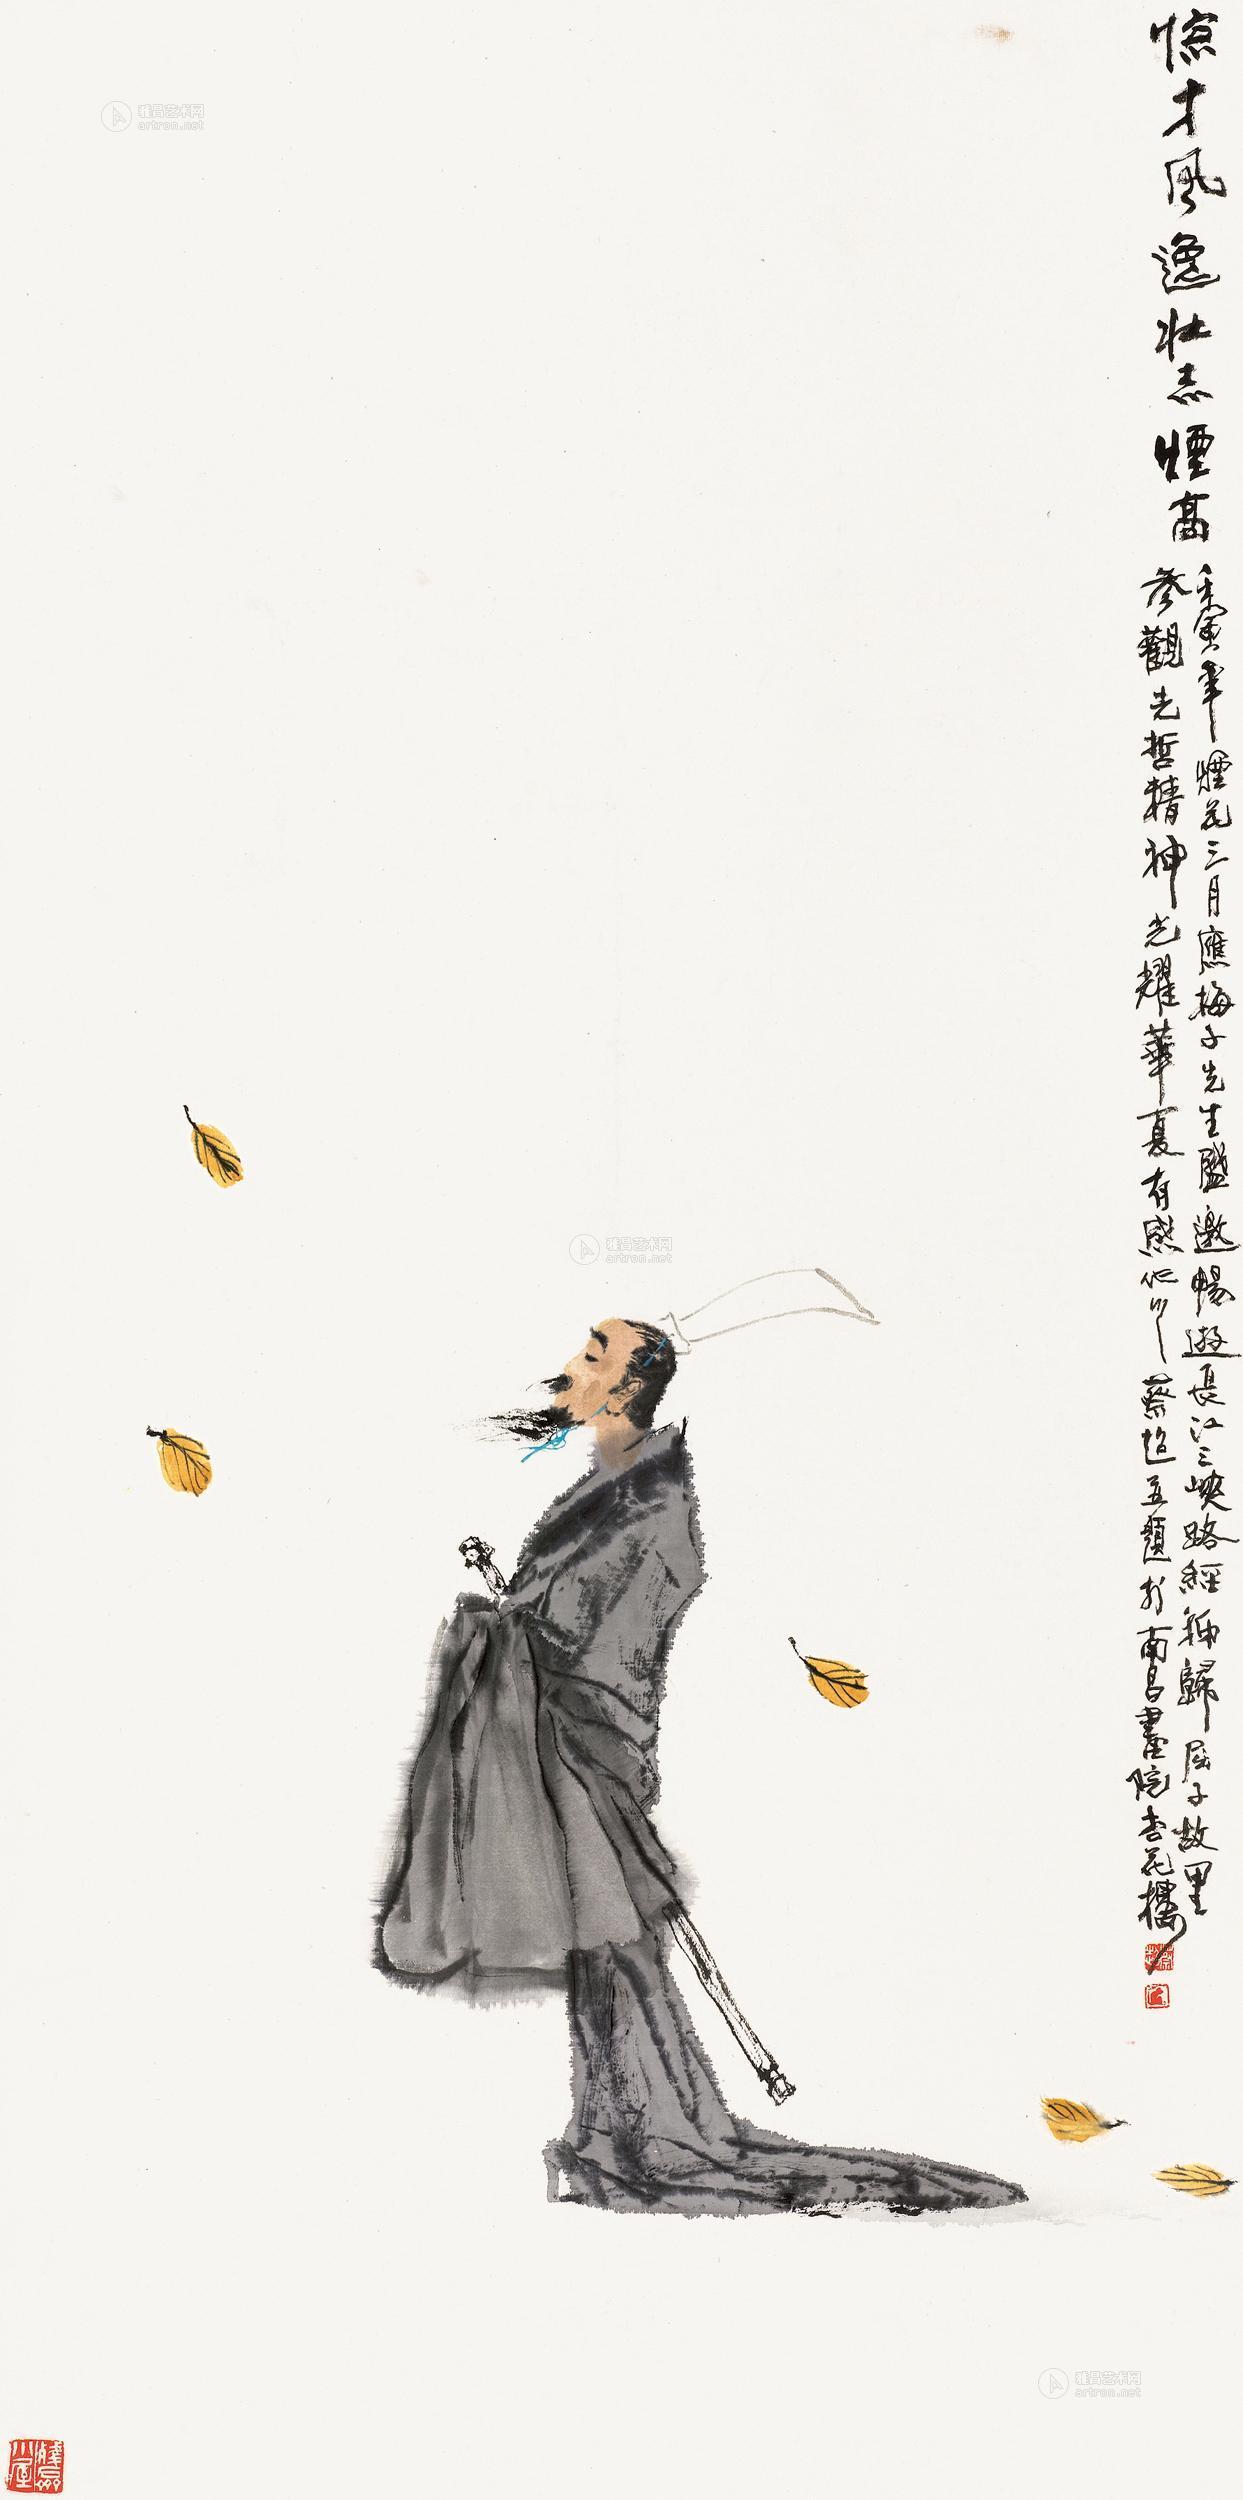 惊才风逸壮志煙高
庚寅年煙花三月應梅子先生盛邀暢遊長江三峽路經秭歸屈子故里
参觀先哲精神光耀華夏有感作此 蔡超并題於南昌畫院杏花樓
雅昌艺术网
artron.net
雅昌艺术网
artron.net
雅昌艺术网
artron.net